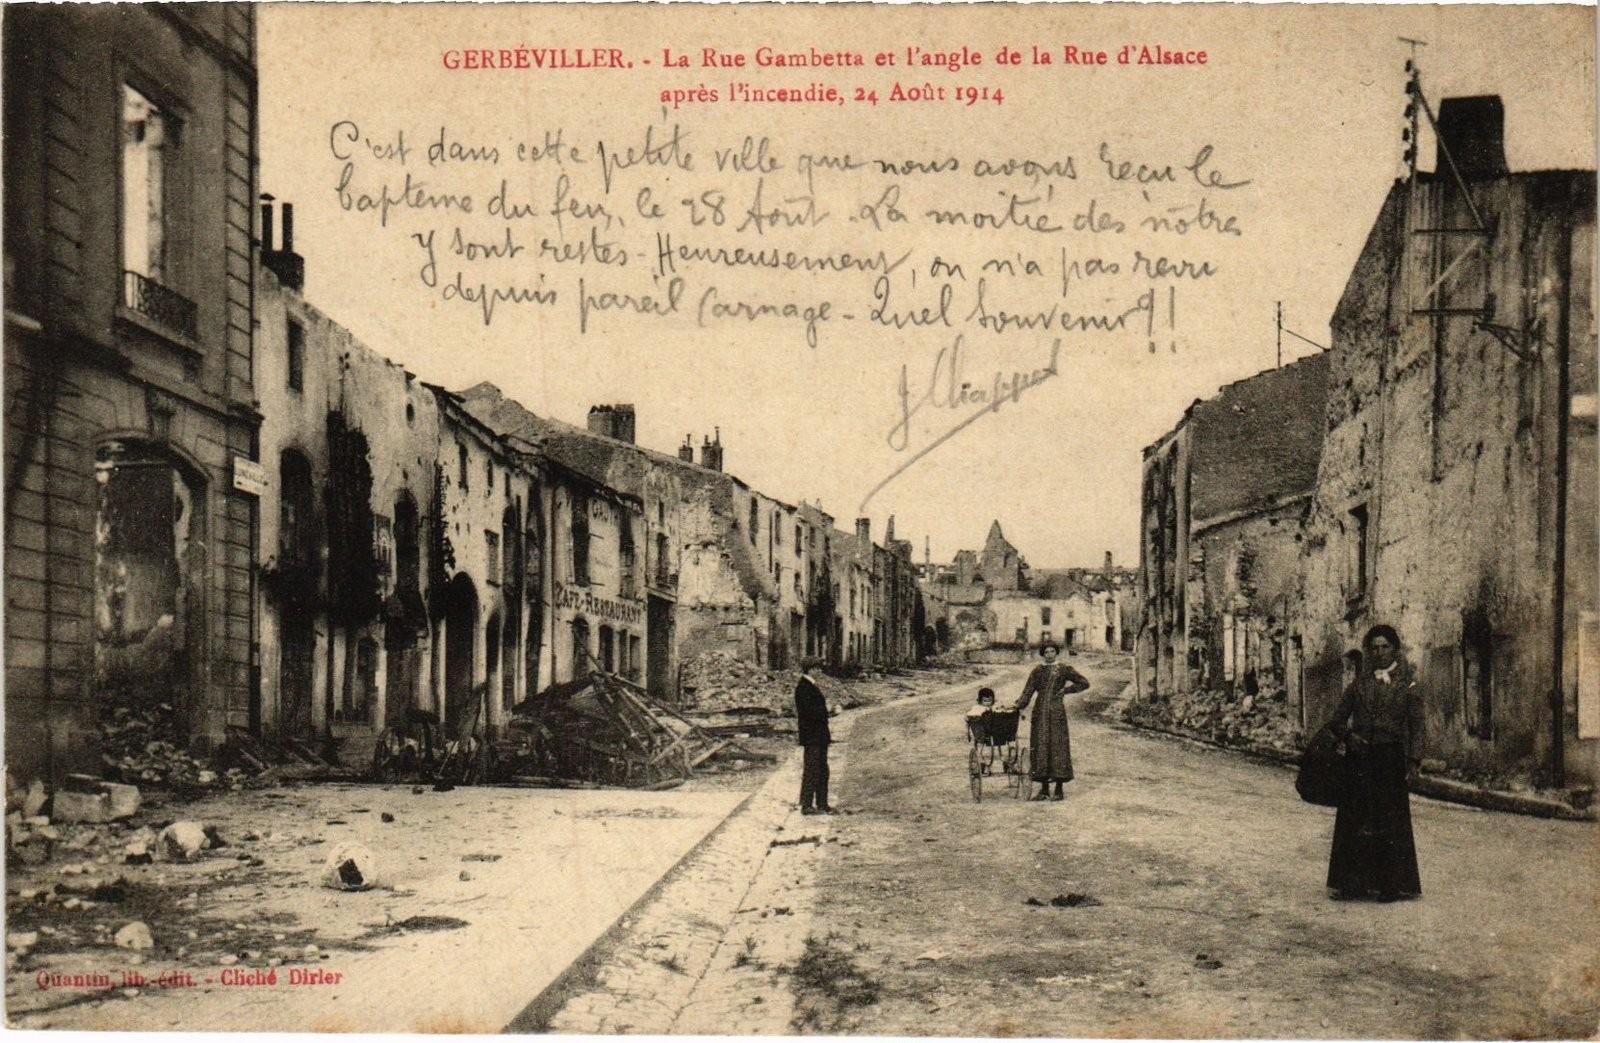 GERBÉVILLER. - La Rue Gambetta et l'angle de la Rue d'Alsace
après l'incendie, 24 Août 1914
C'est dans cette petite ville que nous avons reçu le
baptême du feu, le 28 Août. La moitié des nôtres
y sont restés - Heureusement, on n'a pas revu
depuis pareil carnage - Quel souvenir !!
LUNÉVILLE
CAFÉ-RESTAURANT
Quantin, lib.-édit. - Cliché Dirler